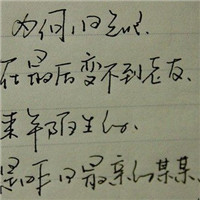 为何旧知己
在最后变不到老友
来年陌生的
是昨日最亲的某某